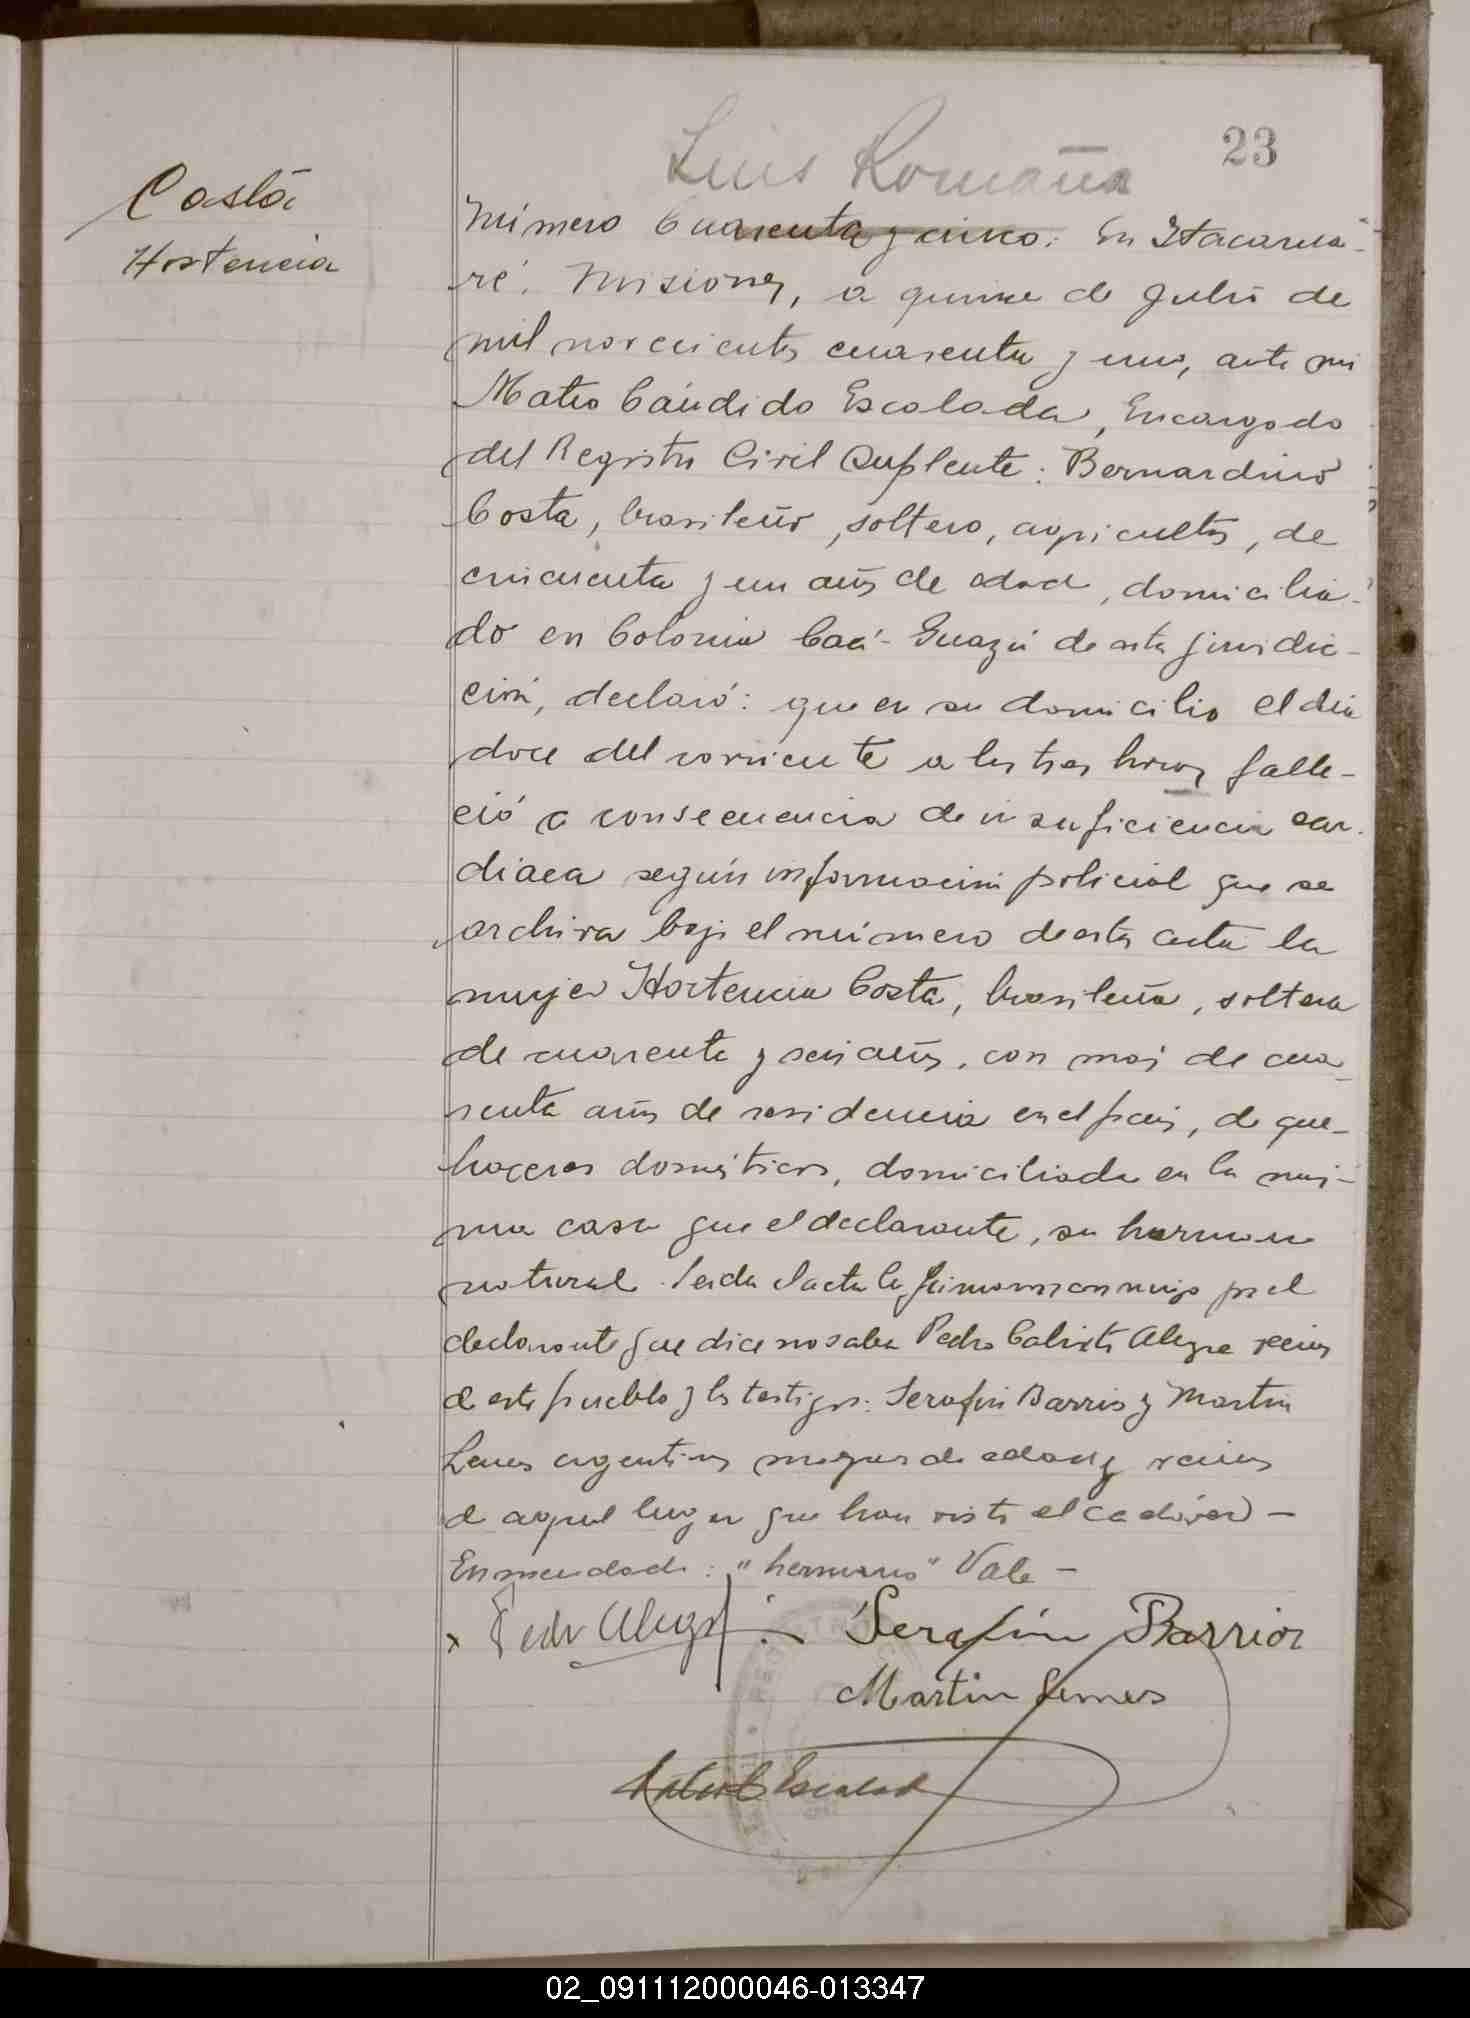 23
Luis Romaña
Costa
Hortencia
Número Cuarenta y cinco: En Itacarua-
ré. Misiones, a quince de Julio de
mil novecientos cuarenta y uno, ante mi
Mateo Cándido Escalada, Encargado
del Registro Civil Suplente: Bernardino
Costa, brasileño, soltero, agricultor, de
cincuenta y un años de edad, domicilia-
do en Colonia Caá-Guazú de esta jurisdic-
ción, declaró: que en su domicilio el dia
doce del corriente a las tres horas falle-
ció a consecuencia de insuficiencia car-
diaca según información policial que se
archiva bajo el número de esta acta la
mujer Hortencia Costa, brasileña, soltera
de cuarenta y seis años, con mas de cua-
renta años de residencia en el pais, de que-
haceres domésticos, domiciliada en la mis-
ma casa que el declarante, su hermano
natural. Leida el acta la firmaron conmigo por el
declarante que dice no saber Pedro Calixto Alegre vecino
de este pueblo y los testigos: Serafin Barrios y Martin
argentinos mayores de edad y vecinos
de aquel lugar que han visto el cadáver —
Enmendado: "hermano" Vale —
x Pedro Alegre Serafin Barrios
Martin
Mateo C Escalada
02_091112000046-013347